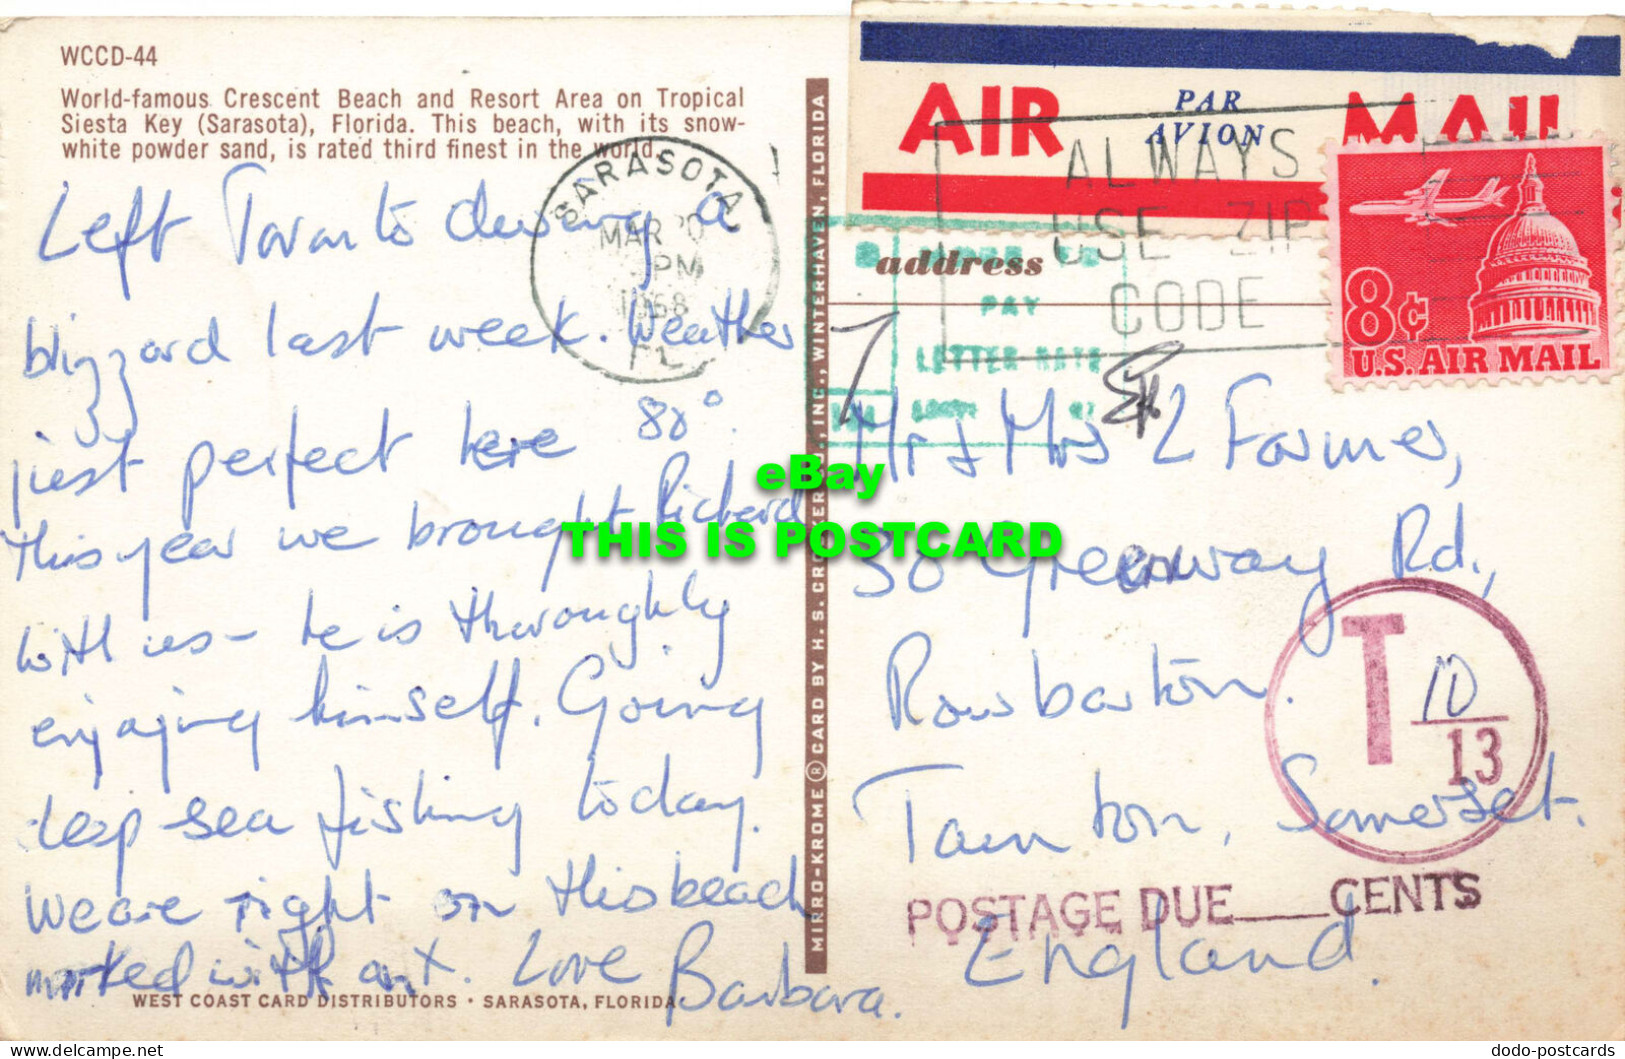 WCCD-44
World-famous Crescent Beach and Resort Area on Tropical
Siesta Key (Sarasota), Florida. This beach, with its snow-
white powder sand, is rated third finest in the world.
Left Toronto during a
blizzard last week. Weather
just perfect here 80°.
This year we brought Richard
with us - he is thoroughly
enjoying himself. Going
deep sea fishing today.
We are right on this beach
marked with an X. Love Barbara.
WEST COAST CARD DISTRIBUTORS · SARASOTA, FLORIDA
SARASOTA,
MAR 20
PM
1968
FL
MIRRO-KROME ® CARD BY H. S. CROCKER CO., INC., WINTERHAVEN, FLORIDA
AIR PAR AVION MAIL
ALWAYS
USE ZIP
CODE
8¢
U.S. AIR MAIL
address
PAY
LETTER RATE
Mr & Mrs L Farmer,
30 Greenway Rd.,
Rowbarton.
Taunton, Somerset.
England.
T 10/13
POSTAGE DUE___CENTS
eBay
THIS IS POSTCARD
dodo-postcards